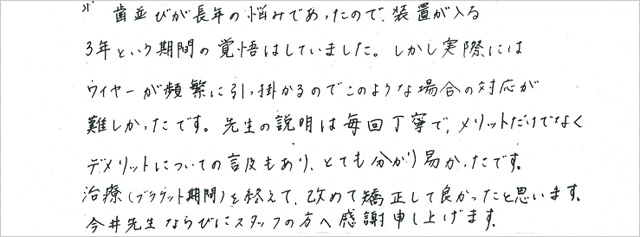 歯並びが長年の悩みであったので、装置が入る
3年という期間の覚悟はしていました。しかし実際には
ワイヤーが頻繁に引っ掛かるのでこのような場合の対応が
難しかったです。先生の説明は毎回丁寧で、メリットだけでなく
デメリットについての言及もあり、とても分かり易かったです。
治療(ブラケット期間)を終えて、改めて矯正して良かったと思います。
今井先生ならびにスタッフの方へ感謝申し上げます。